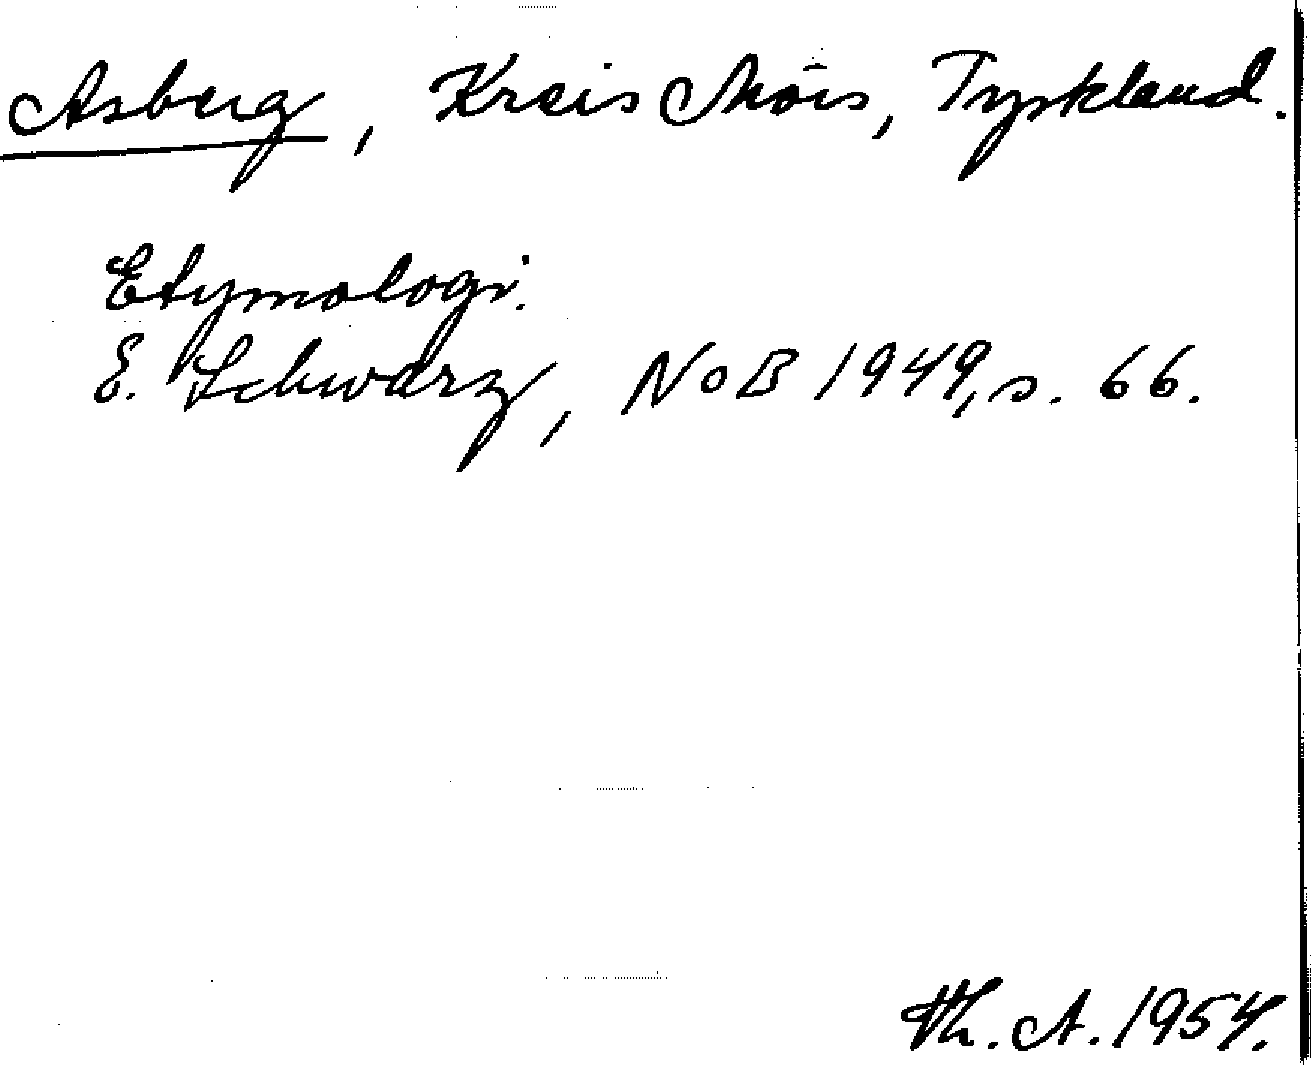 Asberg, Kreis Mörs, Tyskland.
Etymologi.
E. Schwarz, NoB 1949, s. 66.
Th. A. 1954.